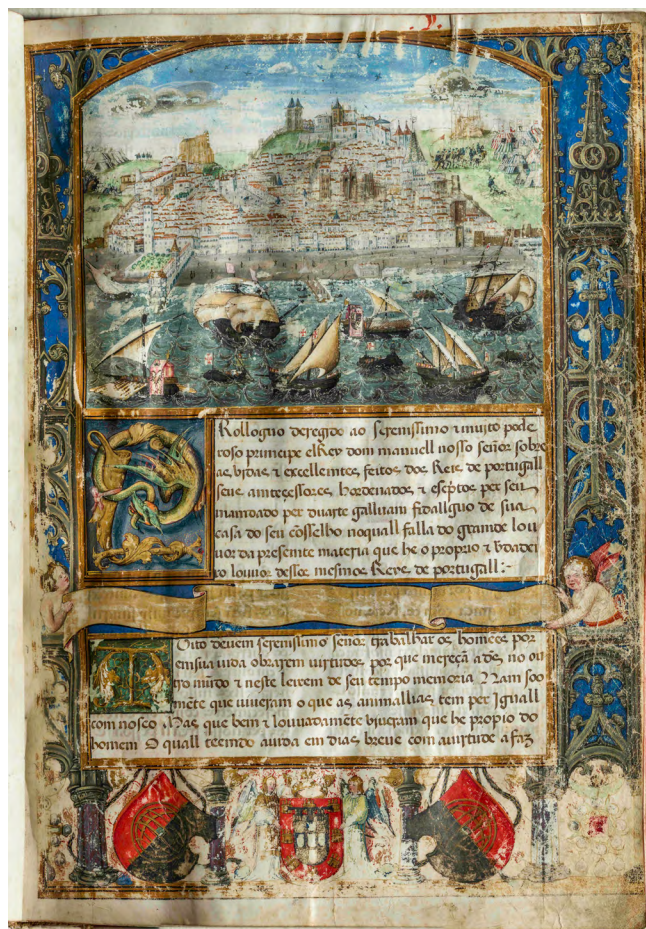 Rollogno deregido ao serenissimo ⁊ muito pode
roso principe elRey dom manuell nosso señor sobre
as, vydas, ⁊ excellentes, feitos, dos, Reis, de portugall
seus, antecessores, hordenados, ⁊ esc̃ptos, per seu
mandado per duarte galluam fidallguo de sua
casa do seu cõsselho noquall falla do grande lou
uor da presente materia que he o proprio ⁊ v̄dadei
ro louuor desses, mesmos, Reys, de portugall :-
Uito deuem serenissimo señor trabalhar os, homẽes, por
em sua uida obrarem uirtudes, por que mereçã a ds̃, no ou
tro mũdo ⁊ neste leixem de seu tempo memoria Nam soo
mẽte que uiueram o que as, animallias, tem per Iguall
com nosco Mas, que bem ⁊ louuadamẽte biueram que he propio do
homem O quall teendo auida em dias, breue com auirtude a faz